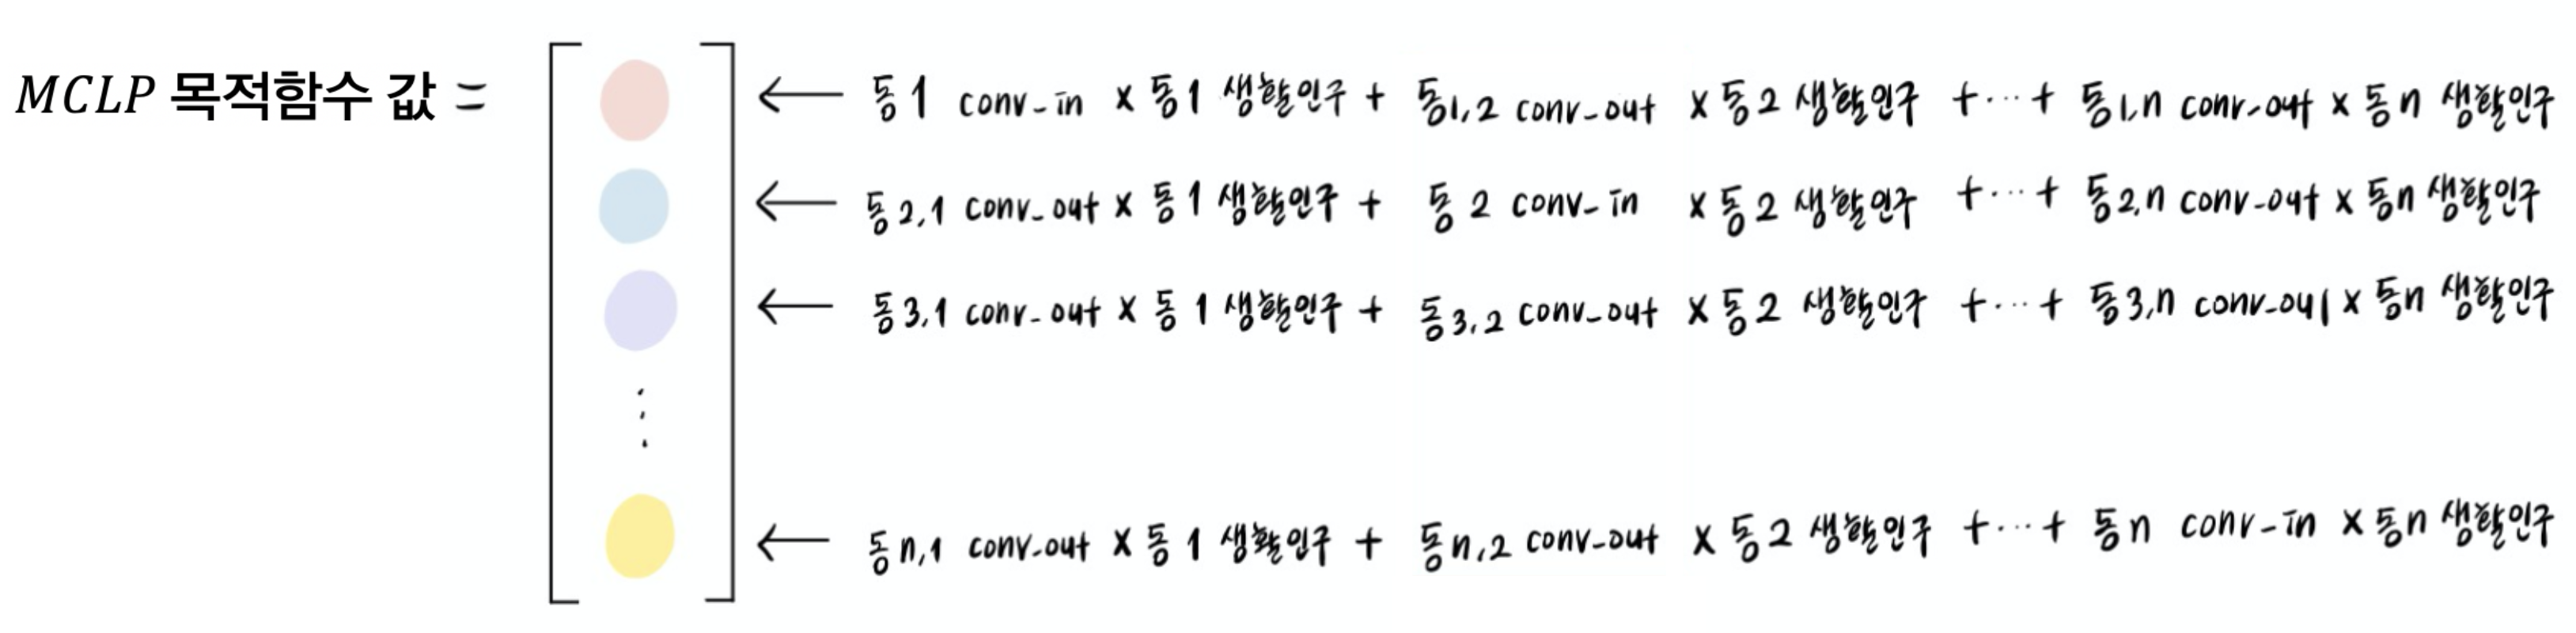 MCLP 목적함수 값 = ← 동1 conv_in × 동1 생활인구 + 동1,2 conv_out × 동2 생활인구 +···+ 동1,n conv_out × 동n 생활인구
← 동2,1 conv_out × 동1 생활인구 + 동2 conv_in × 동2 생활인구 +···+ 동2,n conv_out × 동n 생활인구
← 동3,1 conv_out × 동1 생활인구 + 동3,2 conv_out × 동2 생활인구 +···+ 동3,n conv_out × 동n 생활인구
⋮
← 동n,1 conv_out × 동1 생활인구 + 동n,2 conv_out × 동2 생활인구 +···+ 동n conv_in × 동n 생활인구